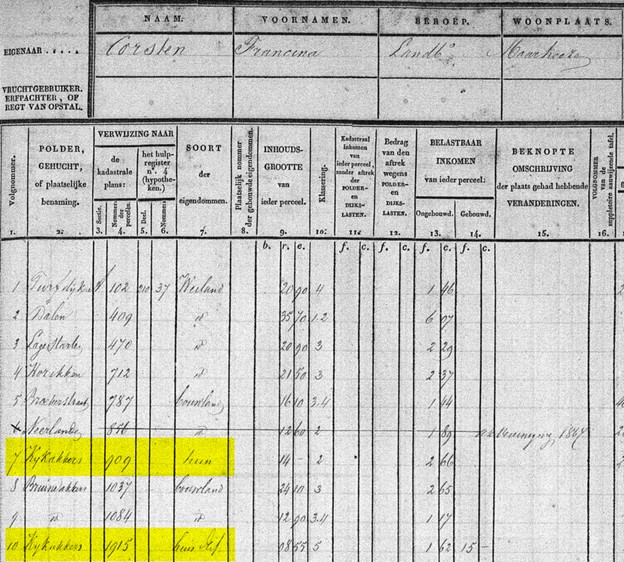 NAAM. VOORNAMEN. BEROEP. WOONPLAATS.
EIGENAAR ..... Corsten Francina Landb. Maarheeze
VRUCHTGEBRUIKER.
ERFPACHTER, OF
REGT VAN OPSTAL.
Volgnommer.
POLDER,
GEHUCHT,
of plaatselijke
benaming.
VERWIJZING NAAR
de
kadastrale
plans:
Sectie.
Nommers
der
perceelen.
het hulp-
register
n°. 4
(hypothe-
ken.)
Deel.
Nommer.
SOORT
der
eigendommen.
Plaatselijk nommer
der gebouwde eigendommen.
INHOUDS-
GROOTTE
van
ieder perceel.
Klassering.
Kadastraal
inkomen
van ieder perceel,
zonder aftrek
der
POLDER-
EN
DIJKS-
LASTEN.
Bedrag
van den
aftrek
wegens
POLDER-
EN
DIJKS-
LASTEN.
BELASTBAAR
INKOMEN
van ieder perceel.
Ongebouwd.
Gebouwd.
BEKNOPTE
OMSCHRIJVING
der plaats gehad hebbende
VERANDERINGEN.
VOLGNOMMER
van de
suppletoire aanwijzende tafel.
1. 2. 3. 4. 5. 6. 7. 8. 9. 10. 11. 12. 13. 14. 15. 16.
b. r. e. f. c. f. c. f. c. f. c.
1 A 102 210 37 Weiland 20 90 4 1 46
2 Dalen 409 id 35 70 1.2 6 07
3 470 id 20 90 3 2 29
4 712 id 21 50 3 2 37
5 787 bouwland 16 10 3.4 1 44
Neerlanden 856 id 12 60 2 1 89 1847
7 Kijkakkers 909 tuin 14 - 2 2 66
8 1037 bouwland 24 10 3 2 65
9 id 1084 id 12 90 3.4 1 17
10 Kijkakkers 1915 huis Erf 08 55 5 1 62 15 -